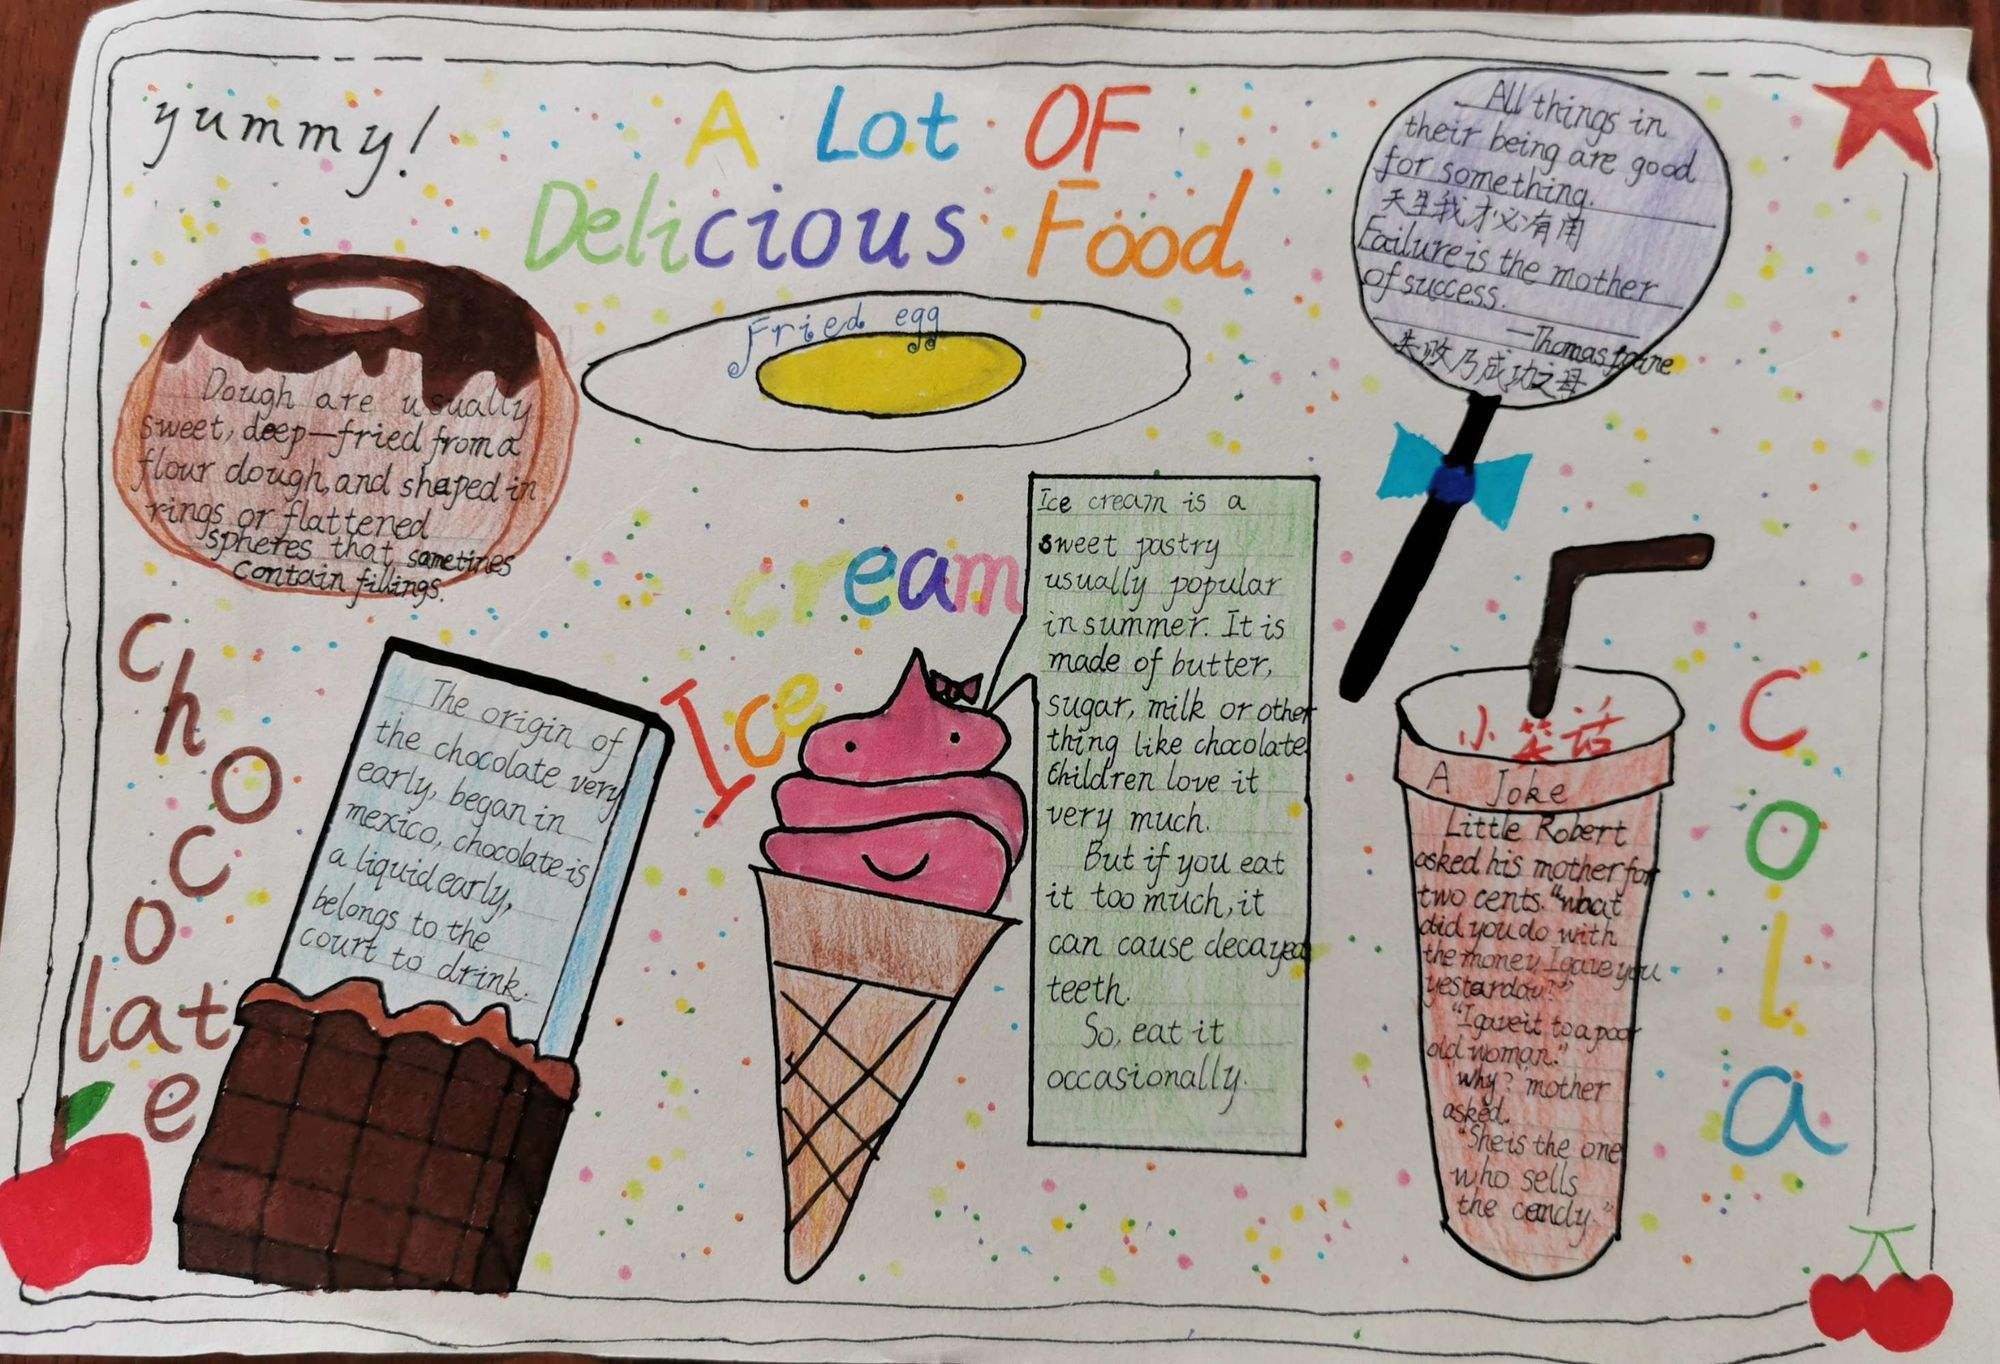 yummy!
A Lot OF
Delicious Food
Fried egg
Dough are usually
sweet, deep—fried from a
flour dough, and shaped in
rings or flattened
spheres that sometimes
contain fillings.
All things in
their being are good
for something.
天生我才必有用
Failure is the mother
of success.
—Thomas paine
失败乃成功之母
chocolate
The origin of
the chocolate very
early, began in
mexico, chocolate is
a liquid early,
belongs to the
court to drink.
Ice cream
Ice cream is a
sweet pastry
usually popular
in summer. It is
made of butter,
sugar, milk or other
thing like chocolate
Children love it
very much.
But if you eat
it too much, it
can cause decayed
teeth.
So, eat it
occasionally.
小笑话
A Joke
Little Robert
asked his mother for
two cents. "what
did you do with
the money I gave you
yesterday?"
"I gave it to a poor
old woman."
"why? mother
asked.
"She is the one
who sells
the candy."
Cola